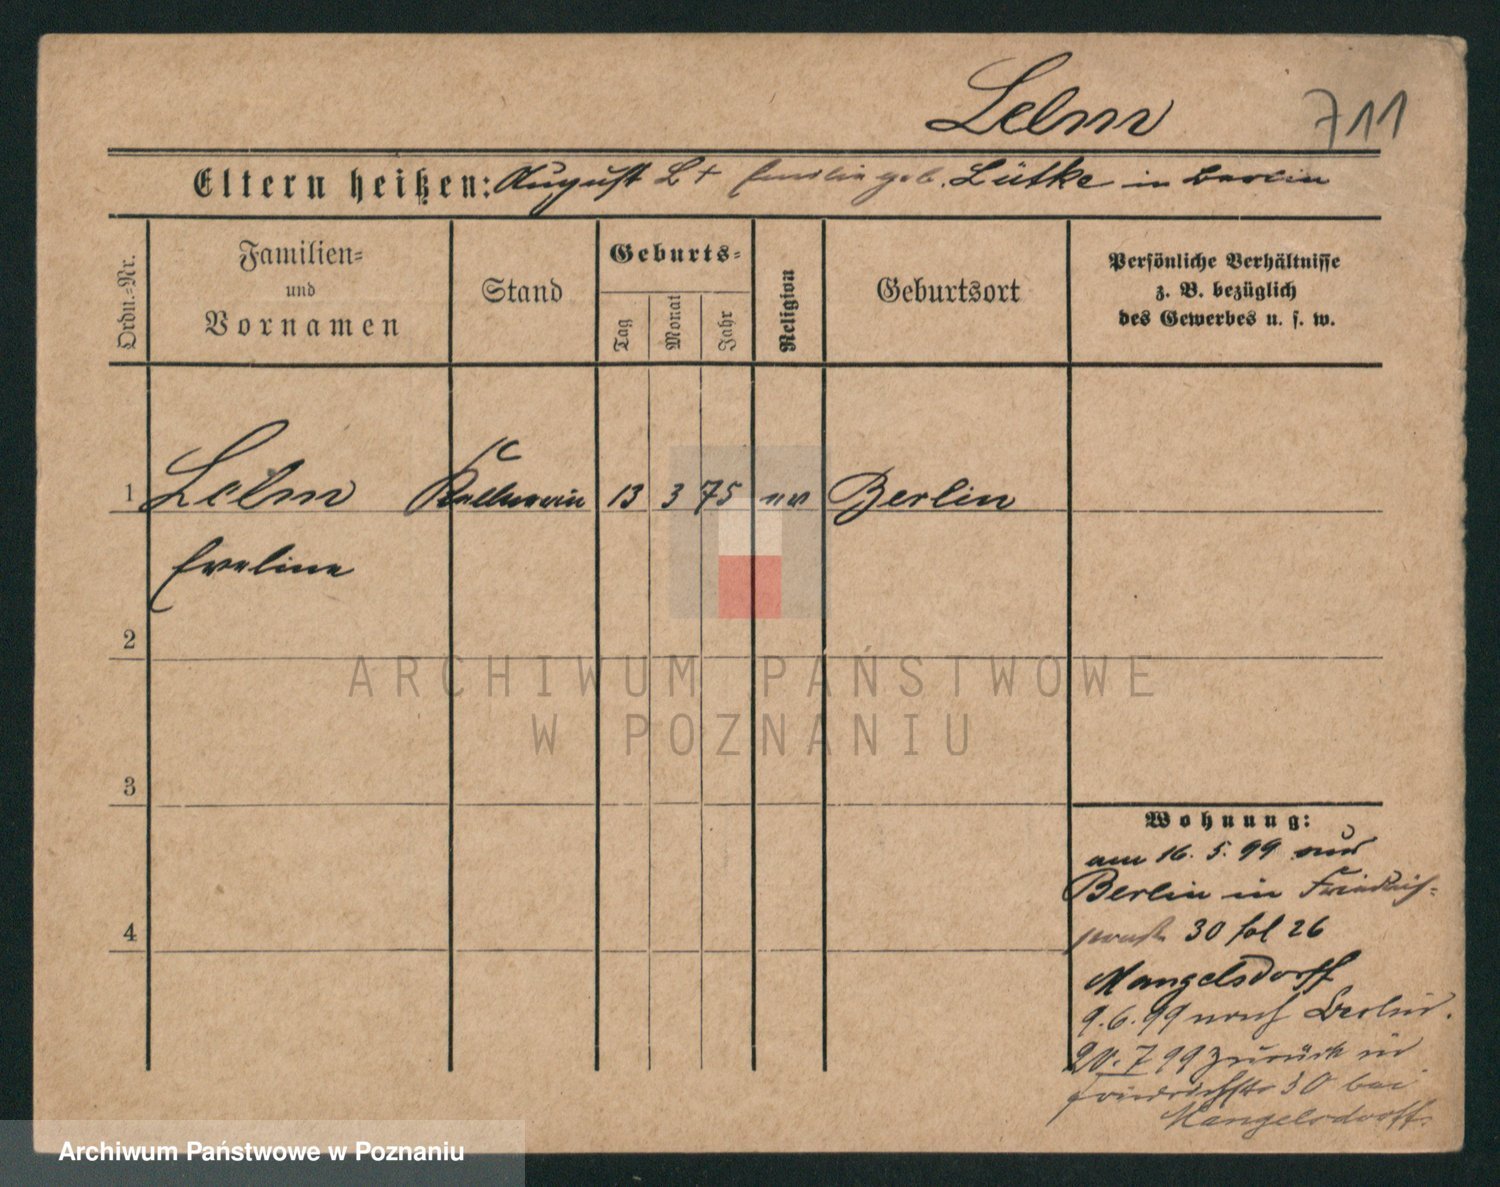 Lelm 711
Eltern heißen: August L + Emilie geb. Lütke in Berlin
Ordn.-Nr.
Familien-
und
Vornamen
Stand
Geburts-
Tag
Monat
Jahr
Religion
Geburtsort
Persönliche Verhältnisse
z. B. bezüglich
des Gewerbes u. s. w.
1 Lelm Kellnerin 13 3 75 ev Berlin
Eveline
2
3
4
Wohnung:
am 16. 5. 99 aus
Berlin in Friedrich-
30 fol 26
Mangelsdorff
9. 6. 99 nach Berlin.
20. 7 99 zurück in
Friedrichstr 30 bei
Mangelsdorff.
ARCHIWUM PAŃSTWOWE
W POZNANIU
Archiwum Państwowe w Poznaniu